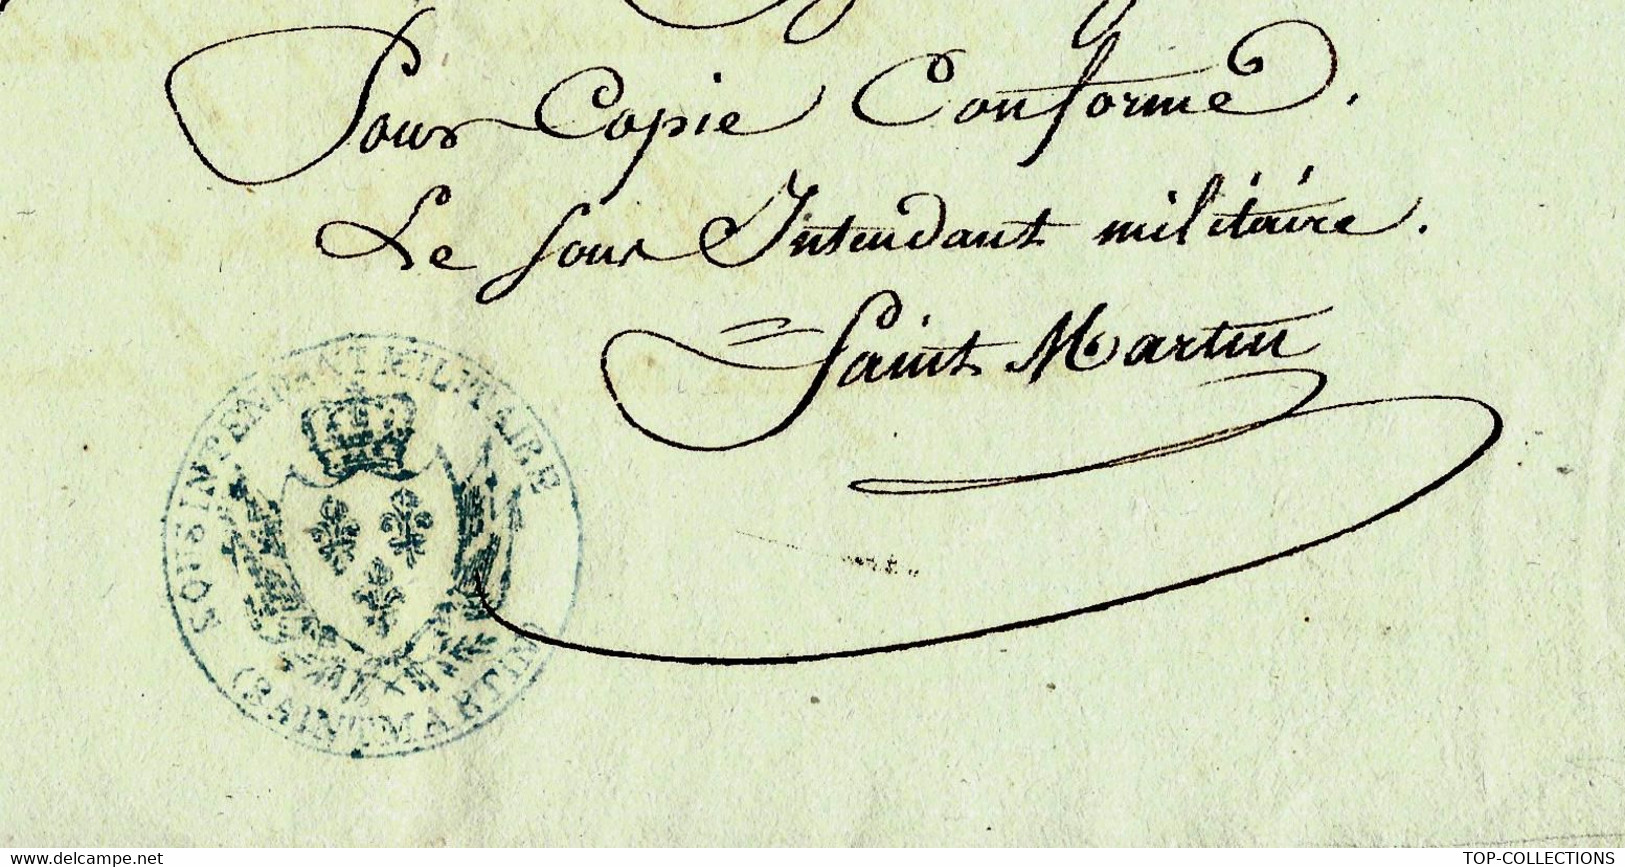 Pour Copie Conforme.
Le sous Intendant militaire.
Saint Martin
SOUS INTENDANT MILITAIRE
(SAINT MARTIN)
www.delcampe.net
TOP-COLLECTIONS